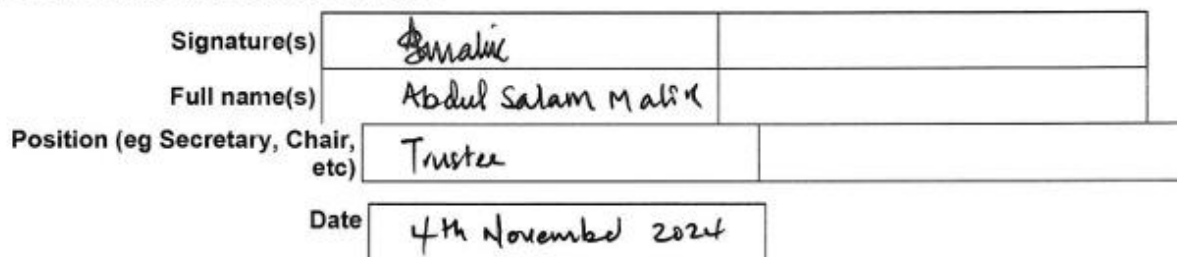 Signature(s)
Full name(s) Abdul Salam Malik
Position (eg Secretary, Chair,
etc) Trustee
Date 4th November 2024